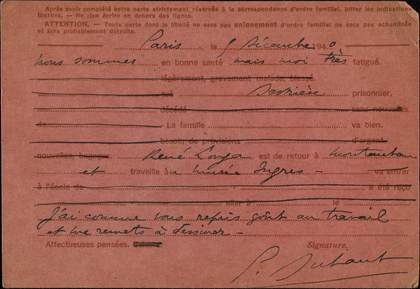 Après avoir complété cette carte strictement réservée à la correspondance d'ordre familial, biffer les indications
inutiles. — Ne rien écrire en dehors des lignes.
ATTENTION. — Toute carte dont le libellé ne sera pas uniquement d'ordre familial ne sera pas acheminée
et sera probablement détruite.
Paris le 5 Décembre 194 0
nous sommes en bonne santé mais moi très fatigué.
légèrement, gravement malade, blessé
tué prisonnier.
décédé sans nouvelles
La famille va bien.
besoin de d'argent
nouvelles, bagages René Longa est de retour à Montauban
et travaille au musée Ingres. va entrer
à l'école de a été reçu
aller à le
J'ai comme vous repris goût au travail
et me remets à dessiner.
Affectueuses pensées. Signature.
P. Dubaut